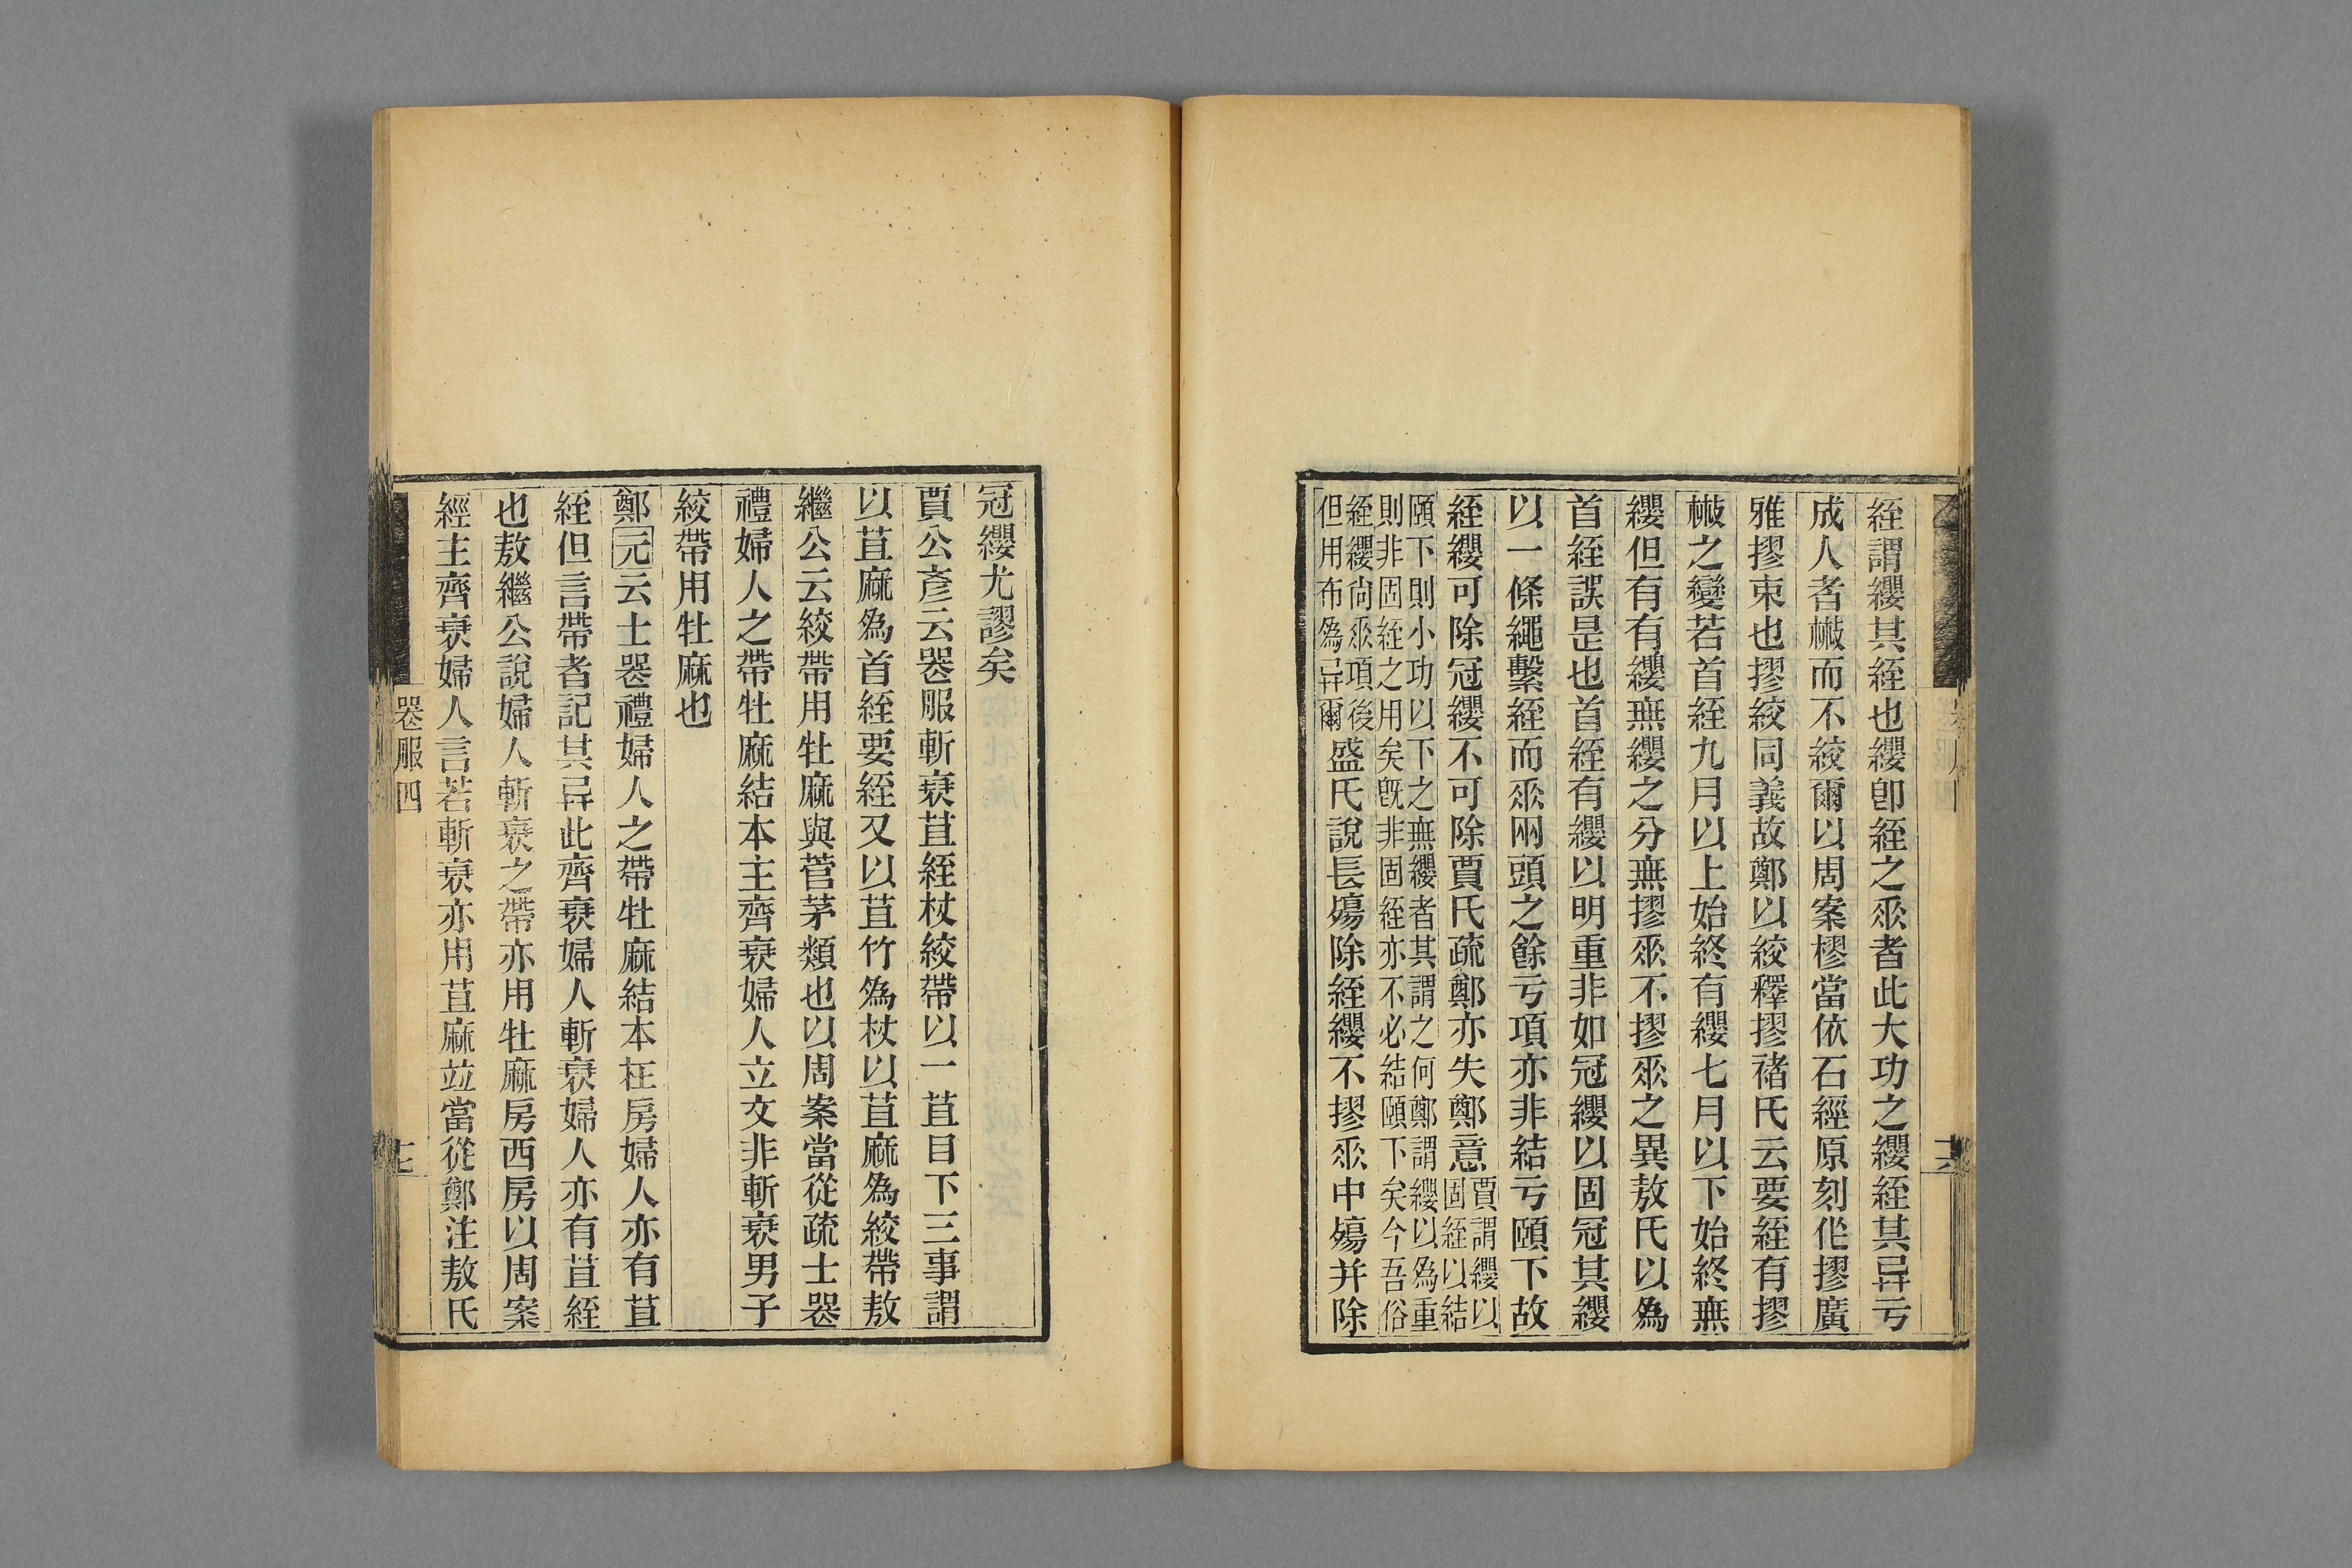 絰謂纓其絰也纓卽絰之𠂹者此大功之纓絰其异亏
成人者㪔而不絞爾以周案樛當依石經原刻作摎廣
雅摎束也摎絞同義故鄭以絞釋摎禇氏云要絰有摎
㪔之變若首絰九月以上始終有纓七月以下始終無
纓但有有纓無纓之分無摎𠂹不摎𠂹之異敖氏以為
首絰誤是也首絰有纓以明重非如冠纓以固冠其纓
以一條繩繫絰而𠂹兩頭之餘亏項亦非結亏頤下故
絰纓可除冠纓不可除賈氏疏鄭亦失鄭意賈謂纓以固絰以結
頤下則小功以下之無纓者其謂之何鄭謂纓以為重則非固絰之用矣旣非固絰亦不必結頤下矣今吾俗
絰纓尙𠂹項後但用布為异爾盛氏說長殤除絰纓不摎𠂹中殤并除
冠纓尤謬矣
賈公彥云喪服斬衰苴絰杖絞帶以一苴目下三事謂
以苴麻為首絰要絰又以苴竹為杖以苴麻為絞帶敖
繼公云絞帶用牡麻與菅茅類也以周案當從疏士喪
禮婦人之帶牡麻結本主齊衰婦人立文非斬衰男子
絞帶用牡麻也
鄭元云士喪禮婦人之帶牡麻結本在房婦人亦有苴
絰但言帶者記其异此齊衰婦人斬衰婦人亦有苴絰
也敖繼公說婦人斬衰之帶亦用牡麻房西房以周案
經主齊衰婦人言若斬衰亦用苴麻竝當從鄭注敖氏
喪服四